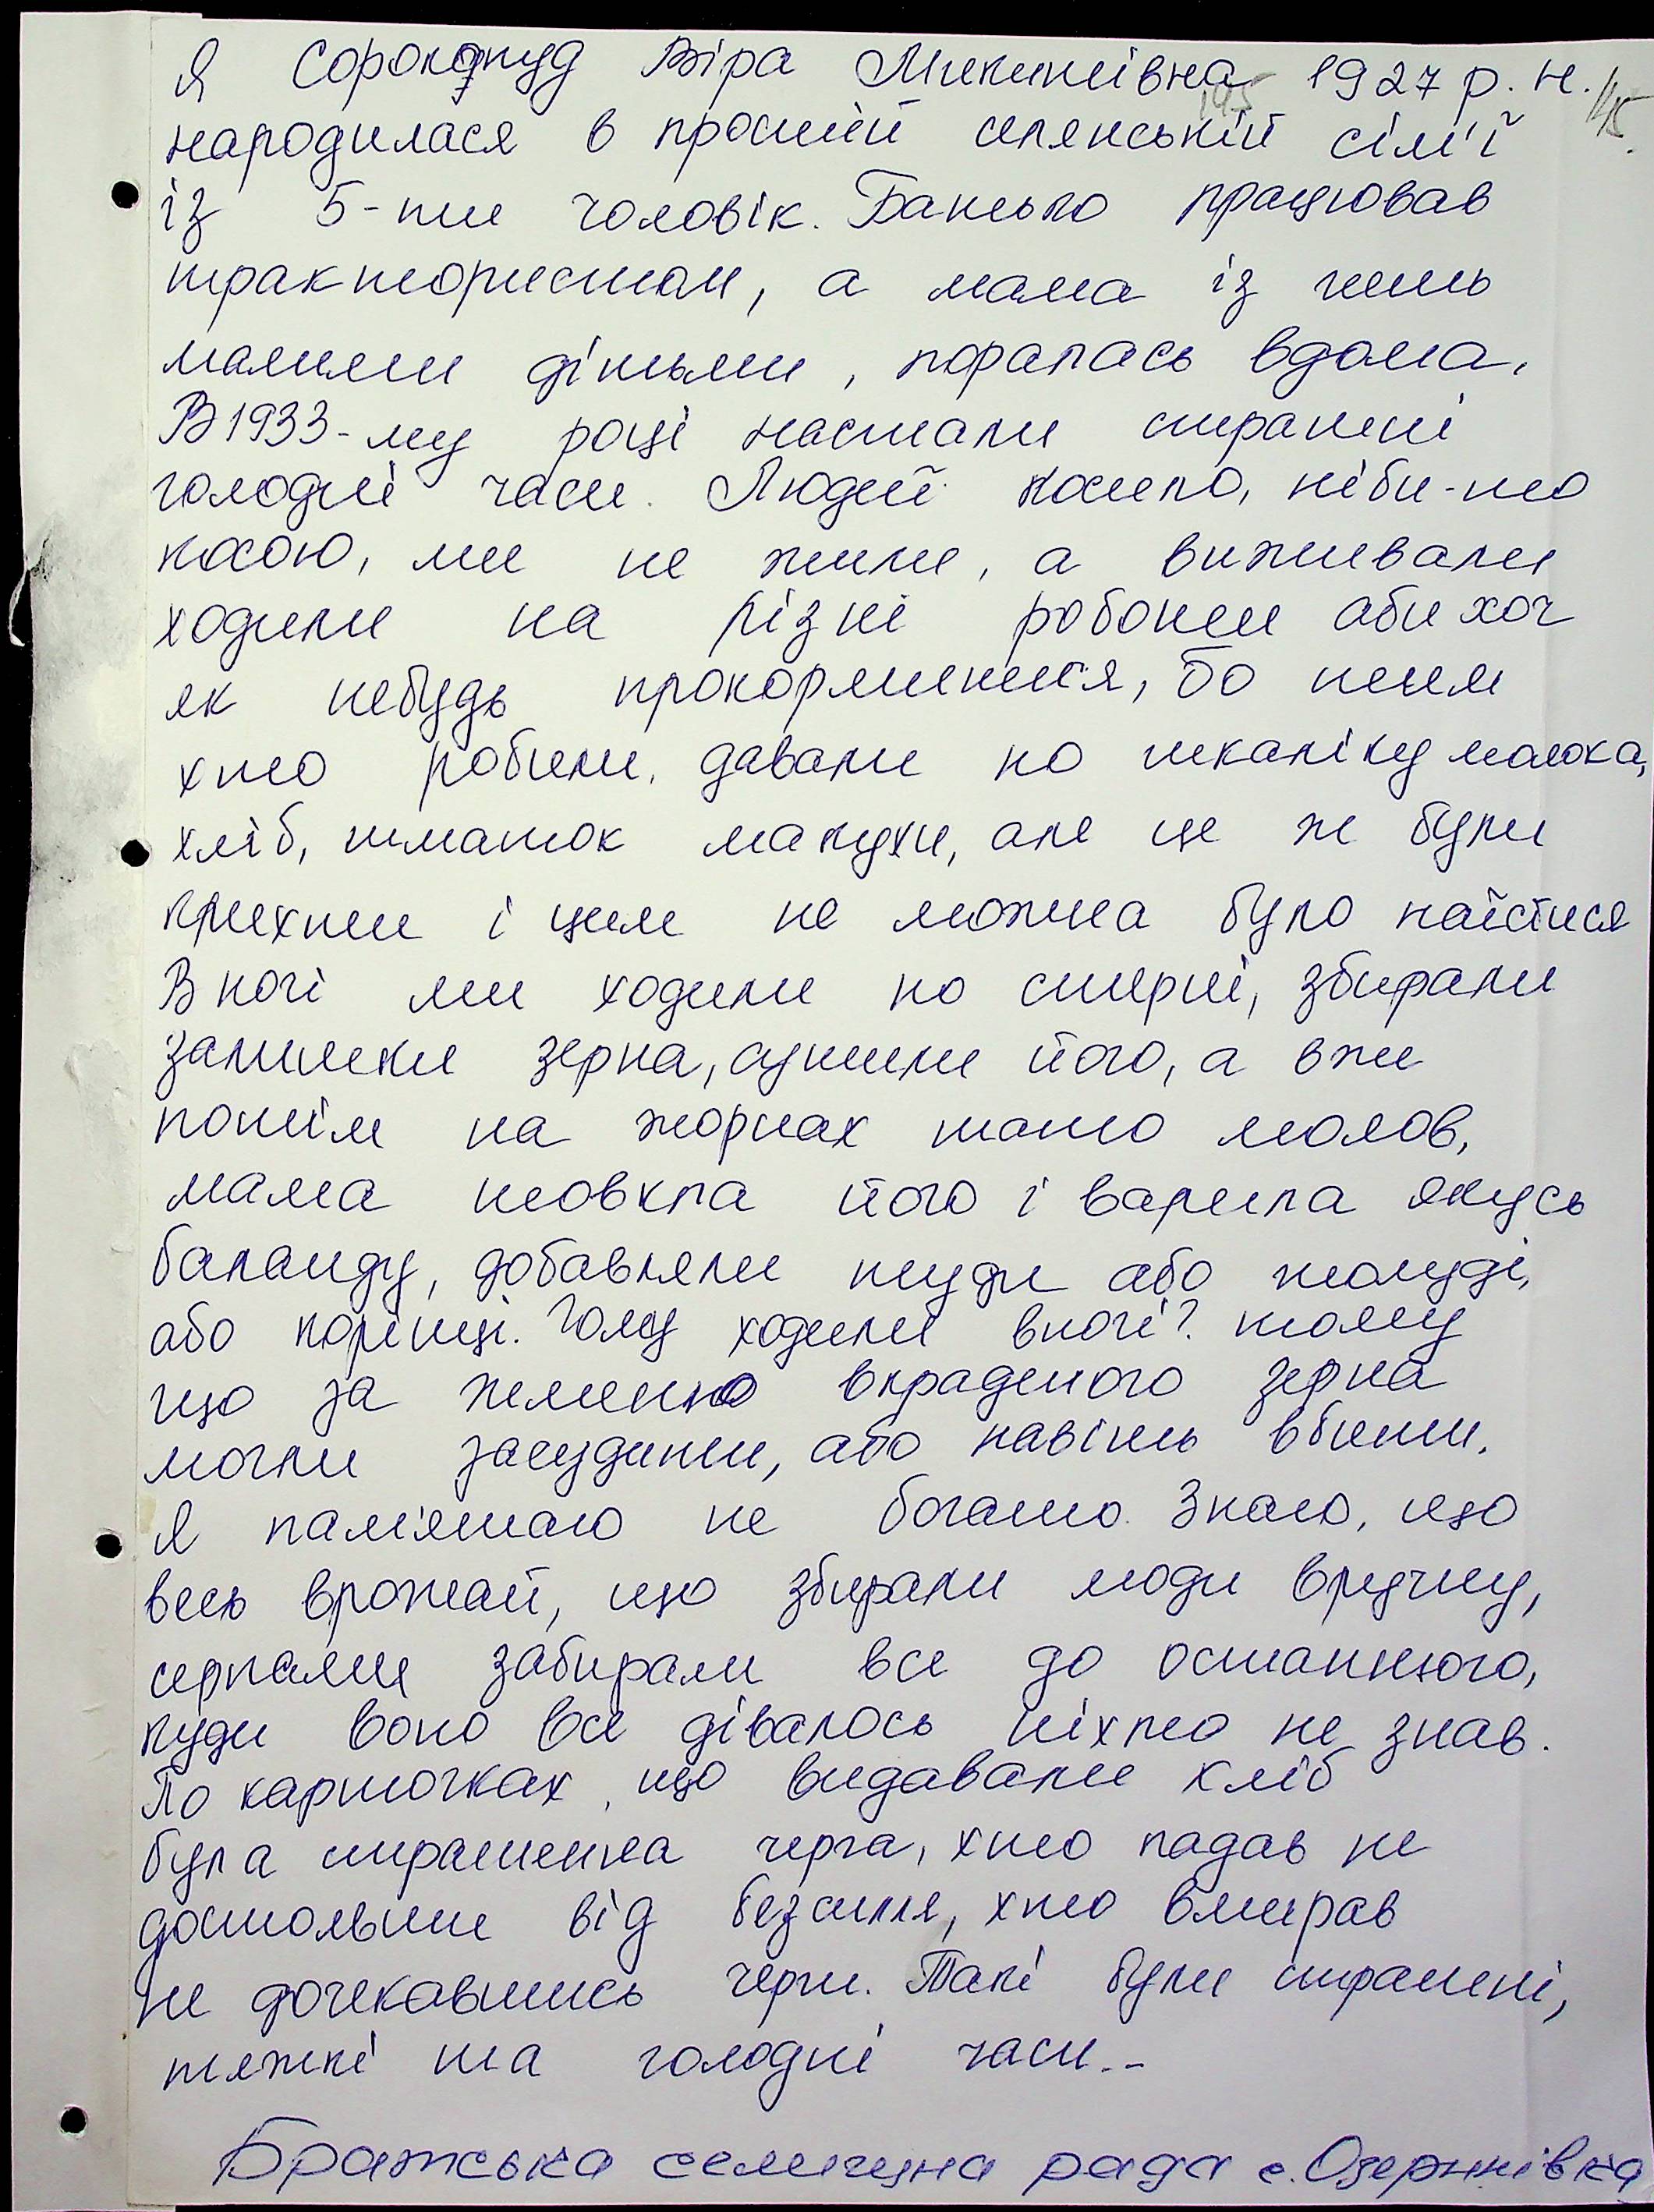 Я Сорокопуд Віра Микитівна 1927 р. н.
народилася в простій селянській сім'ї
із 5-ти чоловік. Батько працював
трактористом, а мама із нами
малими дітьми, поралась вдома.
В 1933-му році настали страшні
голодні часи. Людей косило, ніби-то
косою, ми не жили, а виживали
ходили на різні роботи аби хоч
як небудь прокормитися, бо тим
хто робили, давали по шкаліку молока,
хліб, шматок макухи, але це ж були
крихти і цим не можна було наїстися
В ночі ми ходили по стерні, збирали
залишки зерна, сушили його, а вже
потім на жорнах тато молов,
мама товкла його і варила якусь
баланду, добавляли туди або жолуді,
або корінці. Чому ходили вночі? тому
що за жменю вкраденого зерна
могли засудити, або навіть вбити.
Я пам'ятаю не богато. Знаю, що
весь врожай, що збирали люди вручну,
серпами забирали все до останнього,
куди воно все дівалось ніхто не знав.
По карточках, що видавали хліб
була страшенна черга, хто падав не
достоявши від безсилля, хто вмирав
не дочекавшись черги. Такі були страшні,
тяжкі та голодні часи..
Братська селищна рада с. Озеринівка